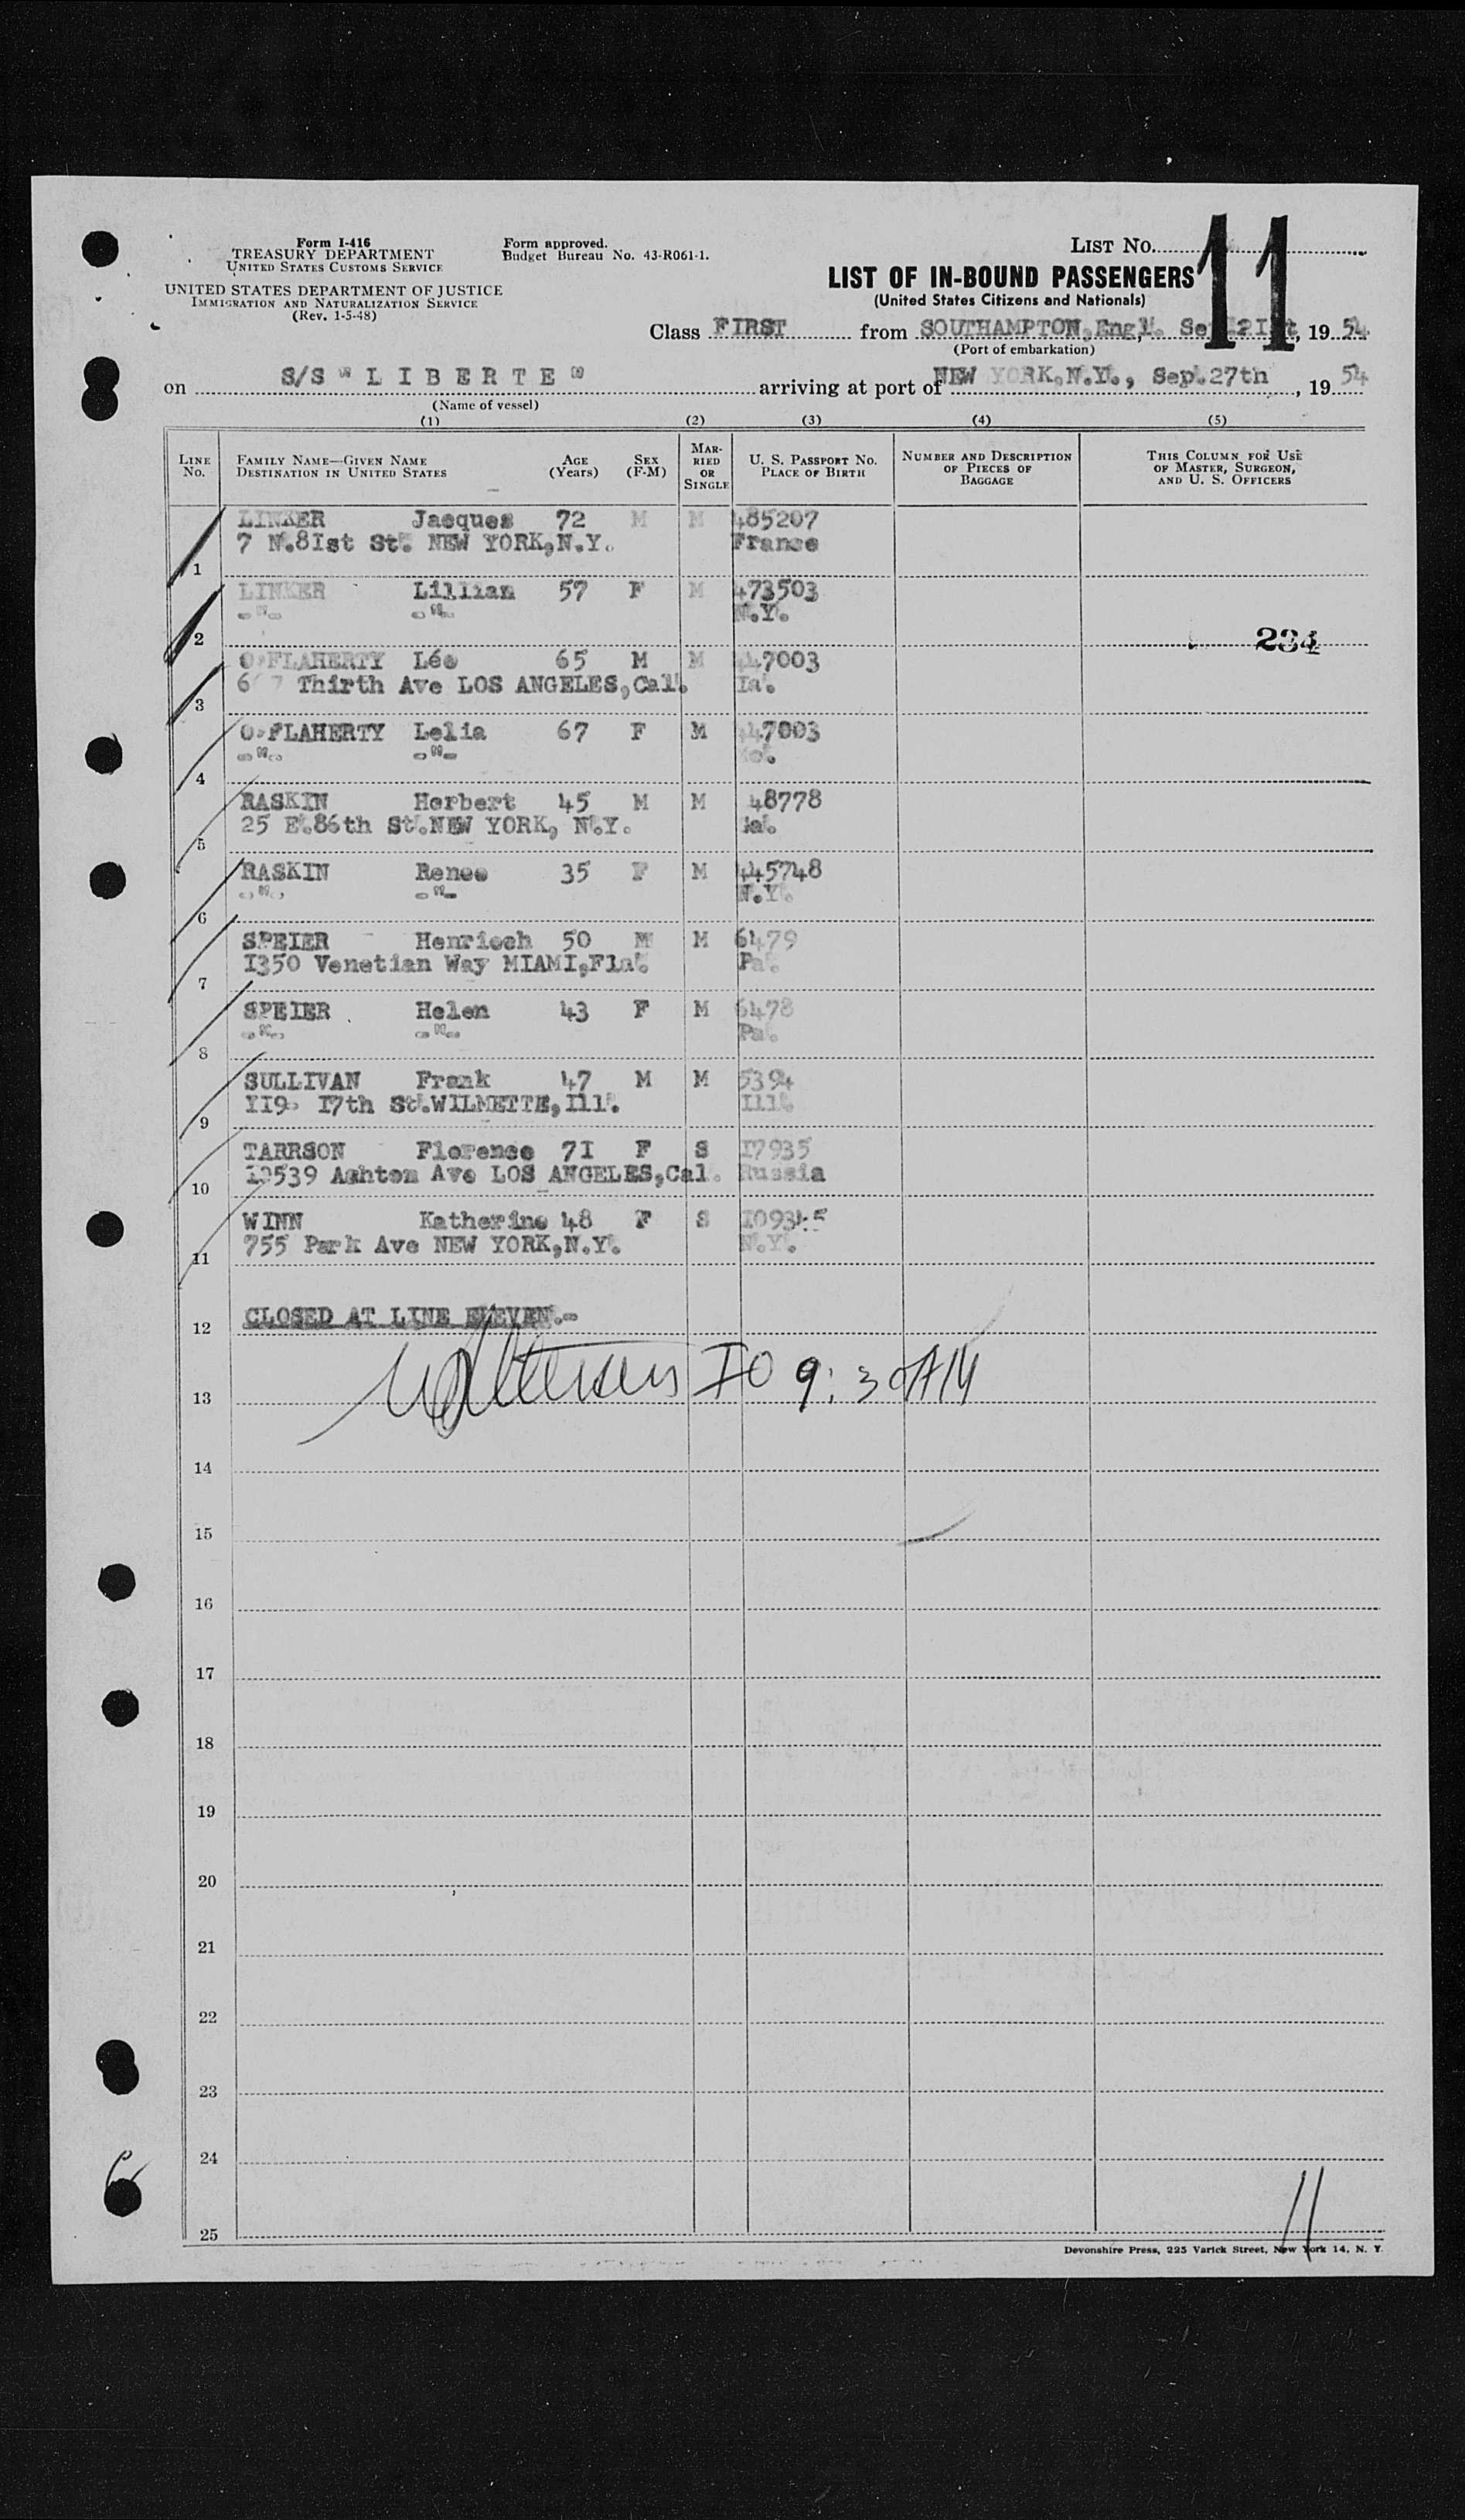 Form I-416
TREASURY DEPARTMENT
UNITED STATES CUSTOMS SERVICE
UNITED STATES DEPARTMENT OF JUSTICE
IMMIGRATION AND NATURALIZATION SERVICE
(Rev. 1-5-48)
Form approved.
Budget Bureau No. 43-R061-1.
LIST NO. 11
LIST OF IN-BOUND PASSENGERS
(United States Citizens and Nationals)
Class FIRST from SOUTHAMPTON, Engl. 2Ist, 1954
(Port of embarkation)
on S/S "LIBERTE" arriving at port of NEW YORK,N.Y., Sep.27th, 1954
(Name of vessel)
(1) (2) (3) (4) (5)
LINE NO. FAMILY NAME—GIVEN NAME DESTINATION IN UNITED STATES AGE (Years) SEX (F-M) MARRIED OR SINGLE U. S. PASSPORT NO. PLACE OF BIRTH NUMBER AND DESCRIPTION OF PIECES OF BAGGAGE THIS COLUMN FOR USE OF MASTER, SURGEON, AND U. S. OFFICERS
LINKER Jacques 72 M M 485207
7 N.8Ist St. NEW YORK,N.Y. France
1
LINKER Lillian 57 F M 473503
-"- -"- N.Y.
2 234
O'FLAHERTY Léo 65 M M 47003
Thirth Ave LOS ANGELES,Cal. Ia.
3
O'FLAHERTY Lelia 67 F M 47003
-"- -"-
4
RASKIN Herbert 45 M M 48778
25 E.86th St.NEW YORK, N.Y.
5
RASKIN Renee 35 F M 445748
-"- -"- N.Y.
6
SPEIER Henrioch 50 M M 6479
I350 Venetian Way MIAMI,Fla. Pa.
7
SPEIER Helen 43 F M 6478
-"- -"- Pa.
8
SULLIVAN Frank 47 M M 5394
II9 I7th St.WILMETTE,Ill. Ill.
9
TARRSON Florence 7I F S I7935
Ashton Ave LOS ANGELES,Cal. Russia
10
WINN Katherine 48 F S I09345
755 Park Ave NEW YORK,N.Y. N.Y.
11
CLOSED AT LINE ELEVEN.-
12
IO 9:30AM
13
14
15
16
17
18
19
20
21
22
23
24
6
25
11
Devonshire Press, 225 Varick Street, New York 14, N. Y.